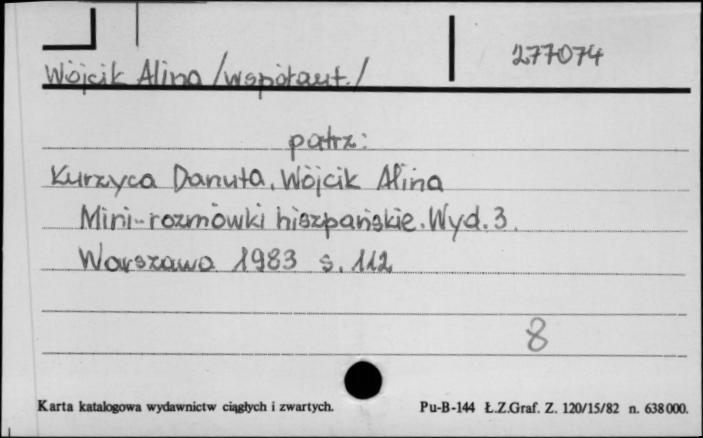 277074
Wójcik Alina /współaut./
patrz:
Kurzyca Danuta, Wójcik Alina
Mini-rozmówki hiszpańskie. Wyd. 3.
Warszawa 1983 s. 112
8
Karta katalogowa wydawnictw ciągłych i zwartych. Pu-B-144 Ł.Z.Graf. Z. 120/15/82 n. 638000.